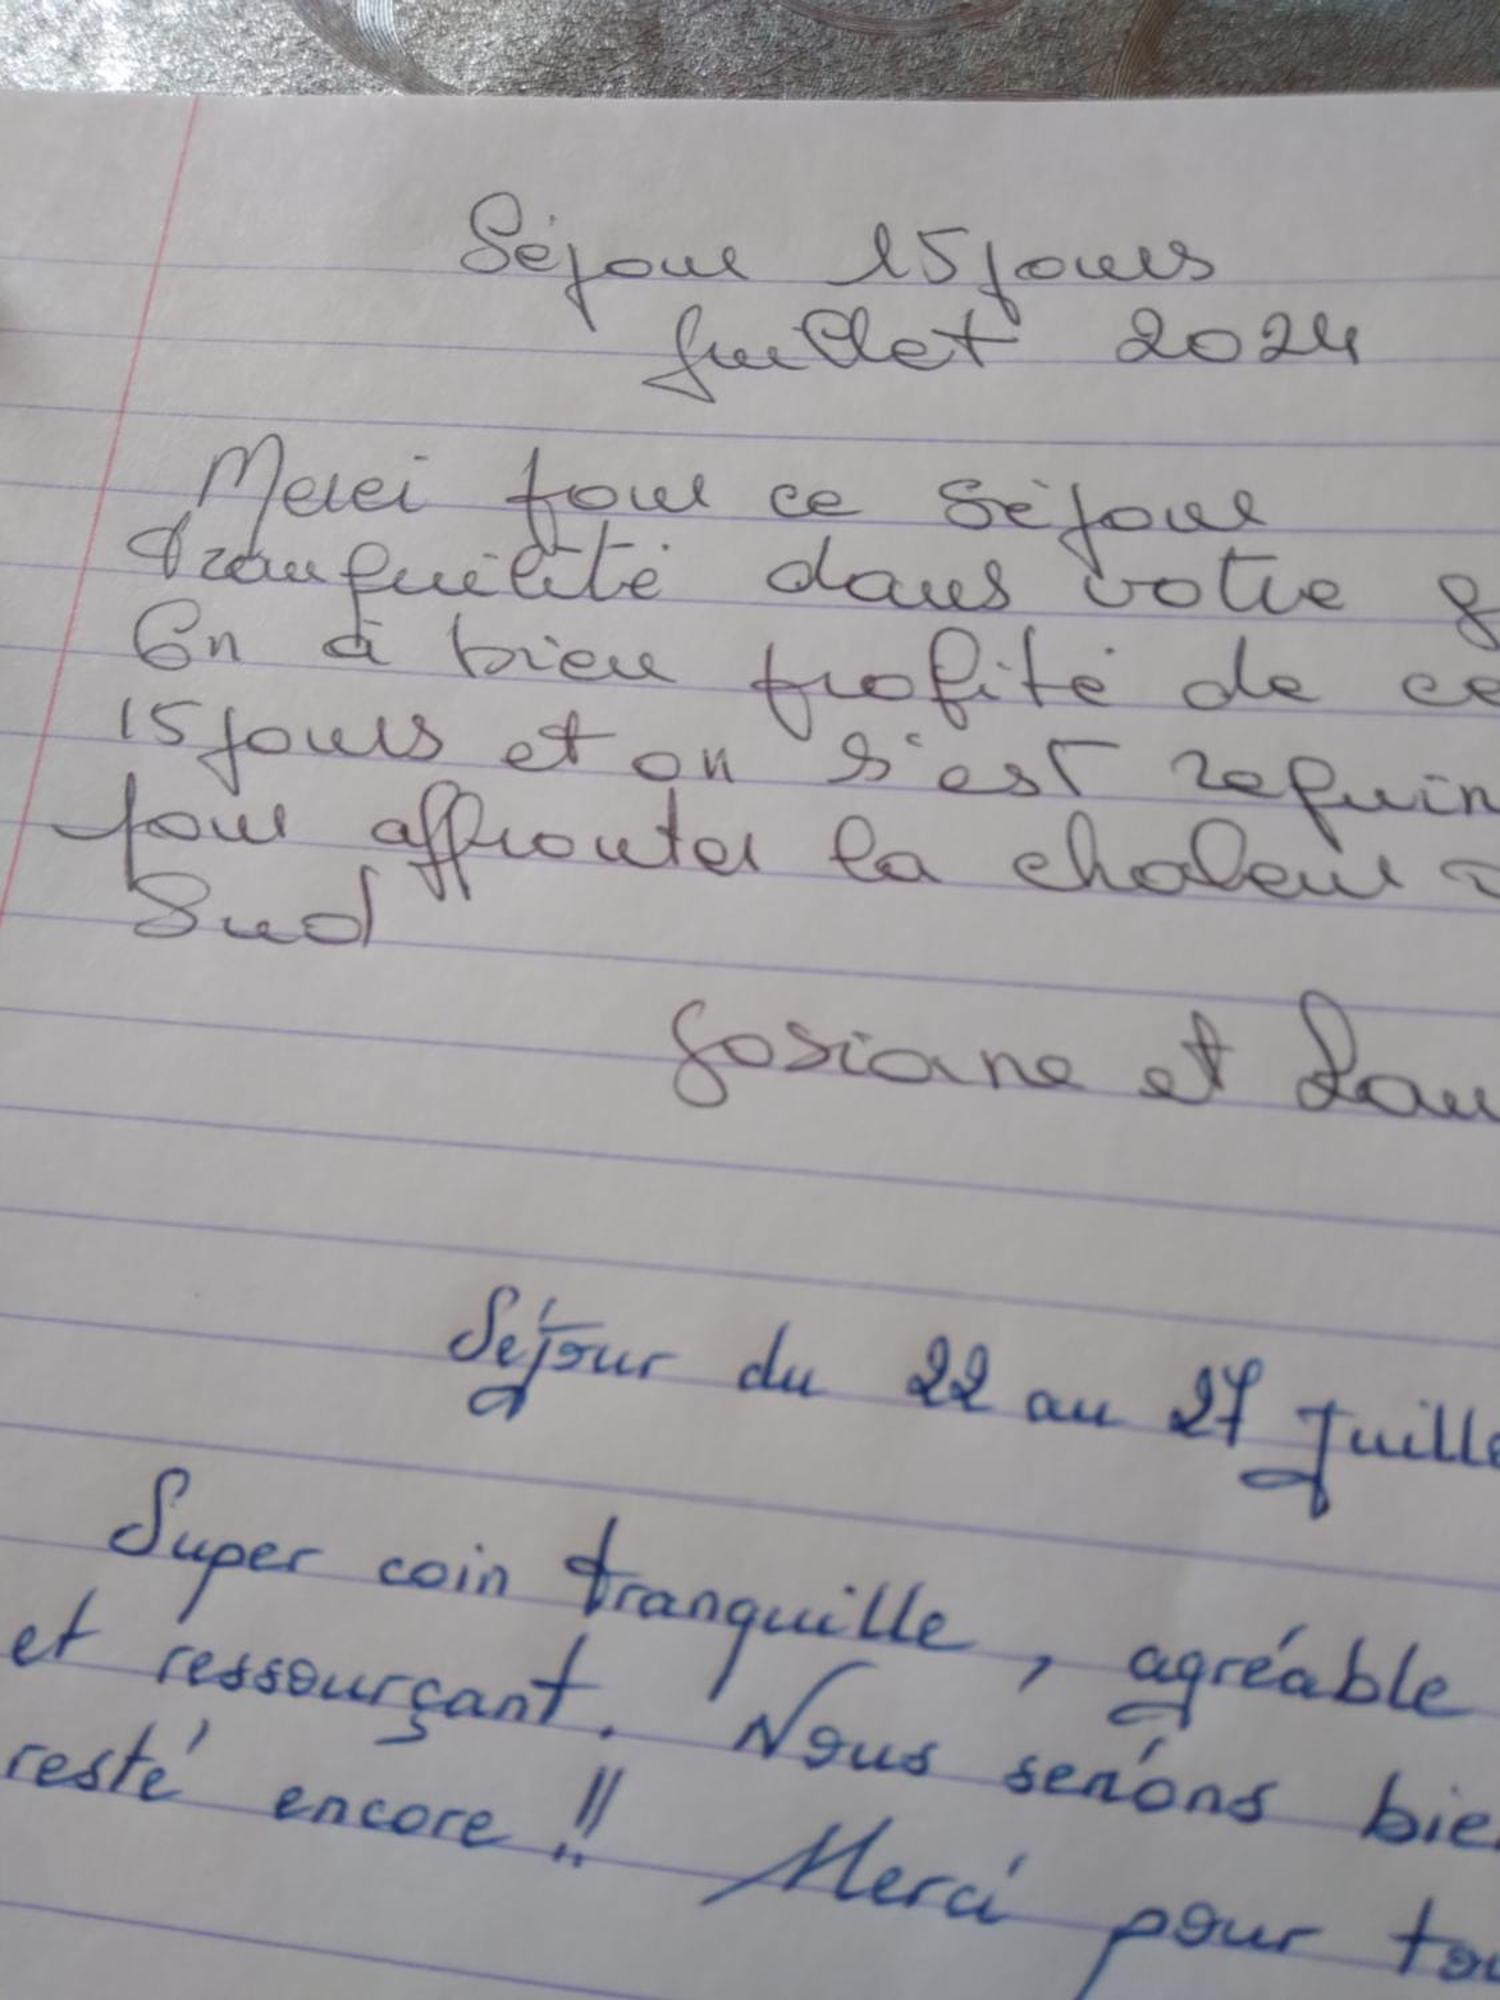 Séjour 15 jours
Juillet 2024
Merci pour ce séjour
tranquilité dans votre
On à bien profité de ce
15 jours et on s'est
pour affronter la chaleur
Sud
Josiane et
Séjour du 22 au 27
Super coin tranquille, agréable
et ressourçant. Nous serións
resté encore !! Merci pour